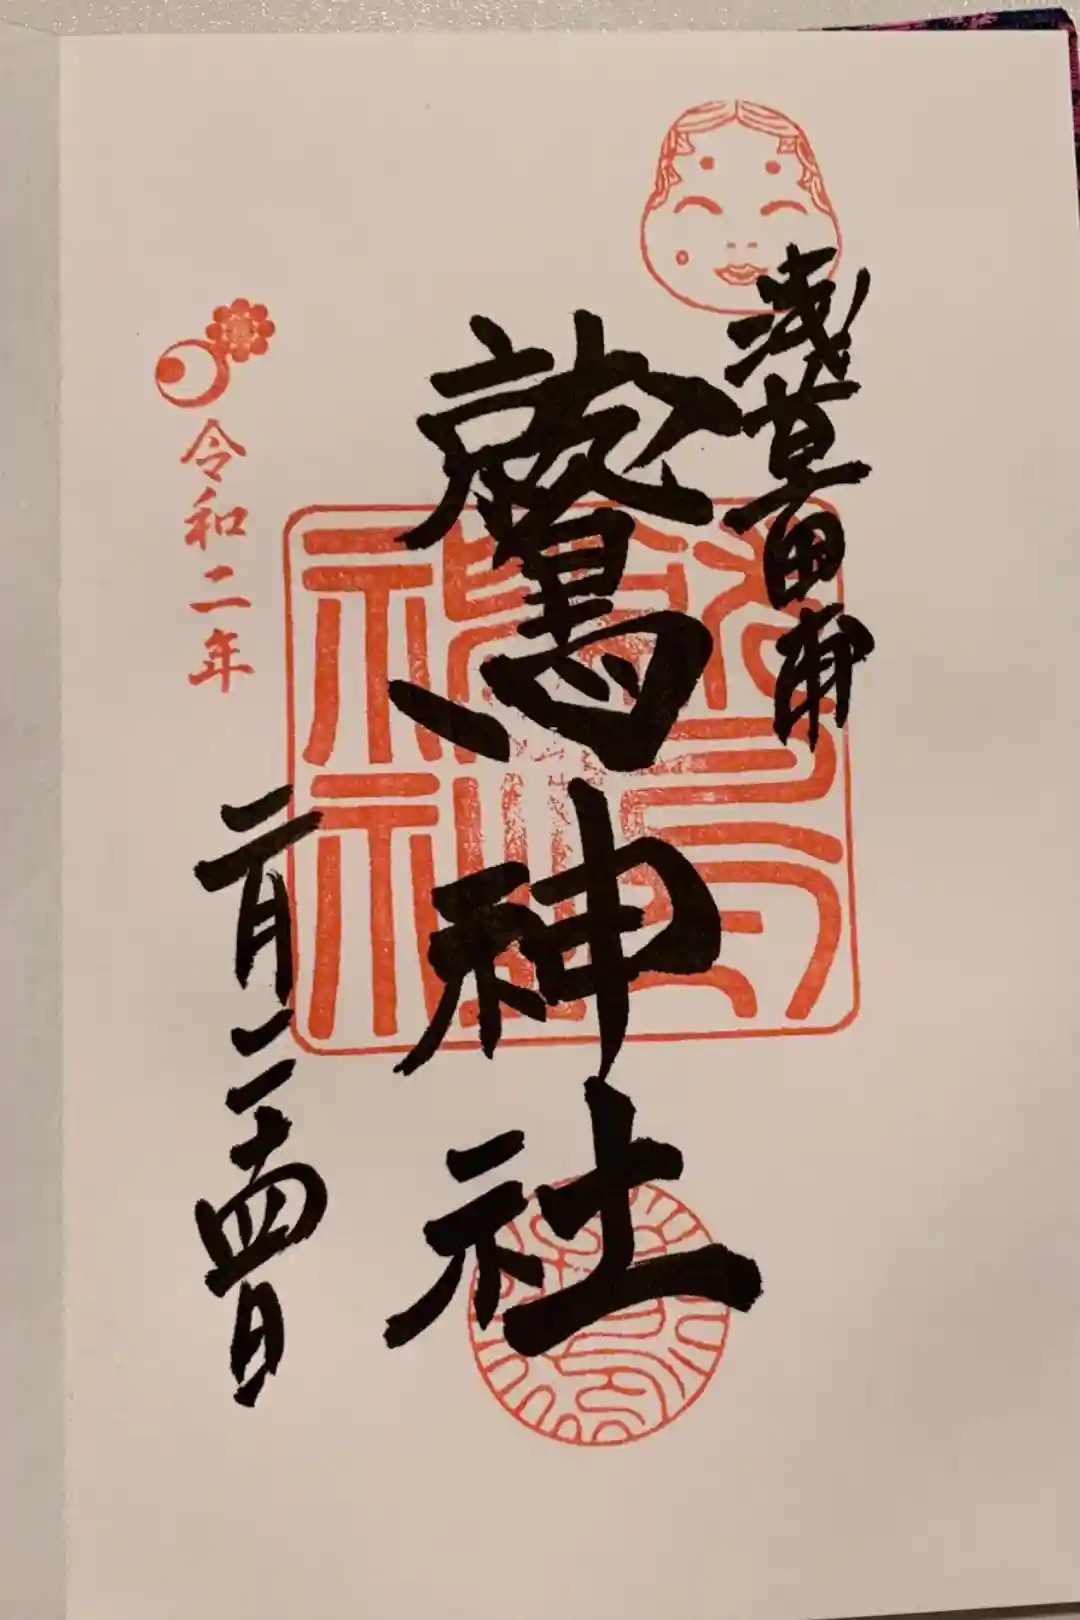 浅草田甫
鷲神社
令和二年
二月二十四日